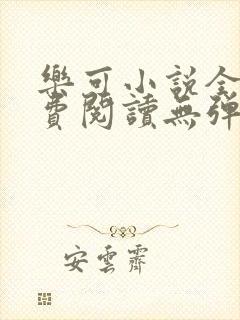 樂可小說全
費閱讀無彈
安雲霽